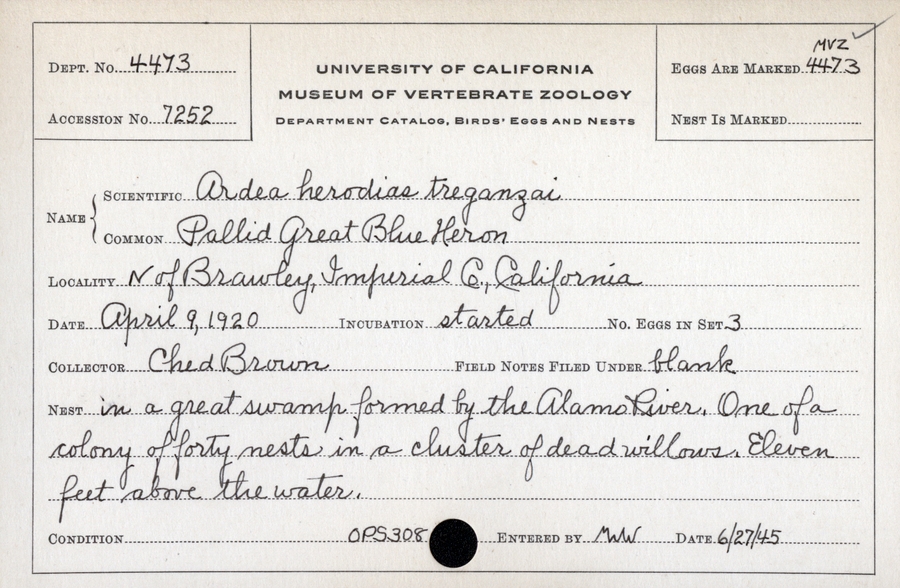 Dept. No. 4473
Accession No. 7252
UNIVERSITY OF CALIFORNIA
MUSEUM OF VERTEBRATE ZOOLOGY
Department Catalog, Birds' Eggs and Nests
MVZ ✓
Eggs Are Marked 4473
Nest Is Marked
Name { Scientific Ardea herodias treganzai
Common Pallid Great Blue Heron
Locality N of Brawley, Imperial Co., California
Date April 9, 1920 Incubation started No. Eggs in Set 3
Collector Ched Brown Field Notes Filed Under blank
Nest in a great swamp formed by the Alamo River. One of a
colony of forty nests in a cluster of dead willows. Eleven
feet above the water.
Condition OPS308 Entered by MWW Date 6/27/45